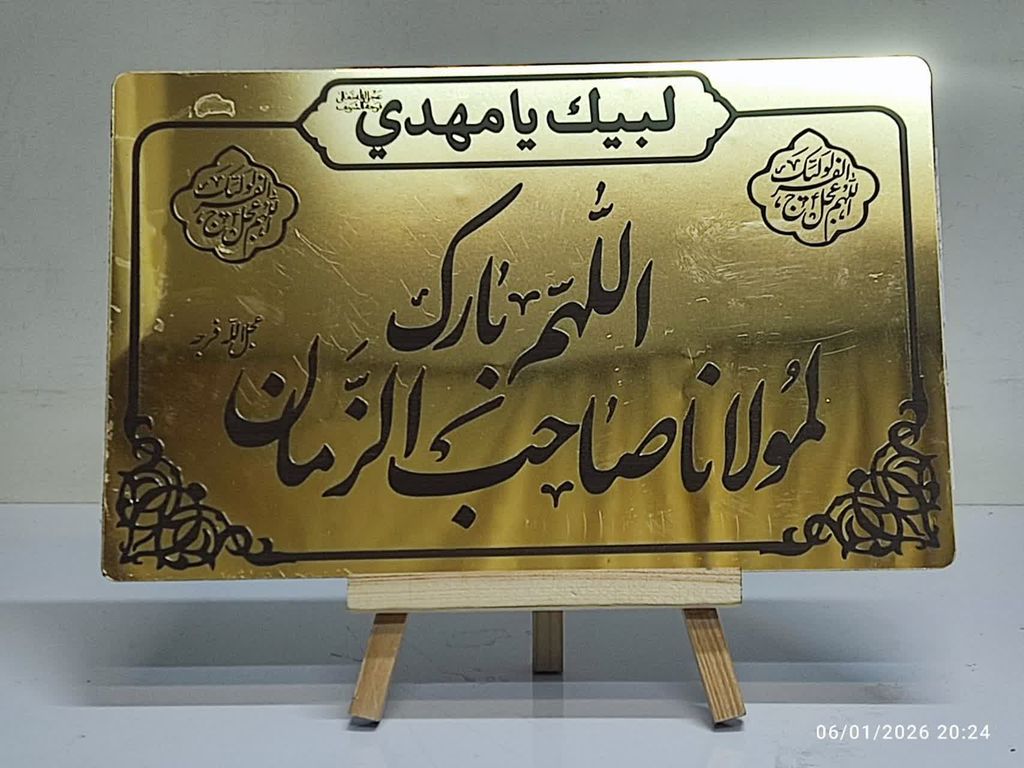 لبيك يا مهدي
عجل الله تعالى
فرجه الشريف
اللهم عجل لوليك الفرج
اللهم عجل لوليك الفرج
اللّٰهمّ بارك
لمُولانا صاحب الزَّمان
عجل الله فرجه
06/01/2026 20:24